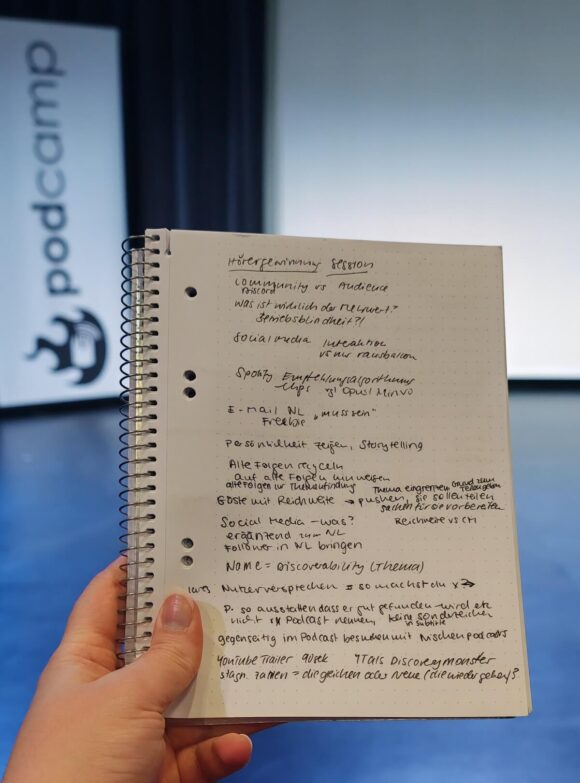 podcamp
Hörergewinnung Session
Community vs Audience
Discord
Was ist wirklich der Mehrwert?
Betriebsblindheit?!
Social Media Interaktion
vs nur rausballern
Spotify Empfehlungsalgorithmus
Clips Opus / Minvo
E-Mail NL "muss sein"
Freebie
Persönlichkeit zeigen, Storytelling
Alte Folgen recyceln
auf alte Folgen hinweisen
alte Folgen zur Themenfindung
Thema eingrenzen Grund zum Teilen geben
Gäste mit Reichweite → pushen, sie sollen teilen
Sachen für sie vorbereiten
Social Media - was? Reichweite vs
ergänzend zum NL
Follower in NL bringen
Name = Discoverability (Thema)
Nutzerversprechen = so machst du x →
P. so ausstatten dass er gut gefunden wird etc
nicht Podcast nennen, keine Sonderzeichen
gegenseitig im Podcast besuchen mit Nischenpodcasts
YouTube Trailer 90sek YT als Discoverymonster
stagn. Zahlen = die gleichen oder neue (die wieder gehen)?